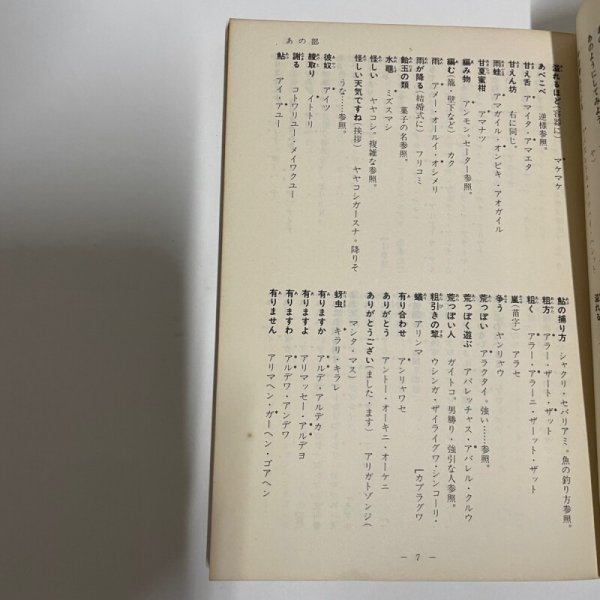 あの部
溢れるほど(容器に) マケマケ
あべこべ 逆様参照。
甘え舌 アマイタ・アマエタ
甘えん坊 右に同じ。
甘夏蜜柑 アマナツ
雨蛙 アマガイル・オンビキ・アオガイル
編み物 アンモン。セーター参照。
編む(籠・壁下など) カク
雨 アメー・オールイ・オシメリ
雨が降る(結婚式に) フリコミ
飴玉の類 菓子の名参照。
水黽 ミズスマシ
怪しい ヤヤコシ。複雑な参照。
怪しい天気ですね(挨拶) ヤヤコシガースナ。降りそ
うな……参照。
彼奴 アイツ
綾取り イトトリ
謝る コトワリユー・メイワクユー
鮎 アイ・アユー
鮎の捕り方 シャクリ・セバリアミ。魚の釣り方参照。
粗方 アラー・ザート・ザット
粗く アラー・アラーニ・ザーット・ザット
嵐(苗字) アラセ
争う ヤンリャウ
荒っぽい アラクタイ。強い……参照。
荒っぽく遊ぶ アバレッチャス・アバレル・クルウ
荒っぽい人 ガイトコ。男勝り・強引な人参照。
粗引きの犂 ウシンガ・ザイライグワ・シンコーリ・
[カブラグワ
蟻 アリンマ
有り合わせ アンリャワセ
ありがとう アントー・オーキニ・オーケニ
ありがとうござい(ました・ます) アリガトゾンジ(
マシタ・マス)
蚜虫 キラリ・キラレ
有りますか アルデ・アルデカ
有りますよ アリマッセー・アルデヨ
有りますわ アルデワ・アンデワ
有りません アリマヘン・ガーヘン・ゴアヘン
— 7 —